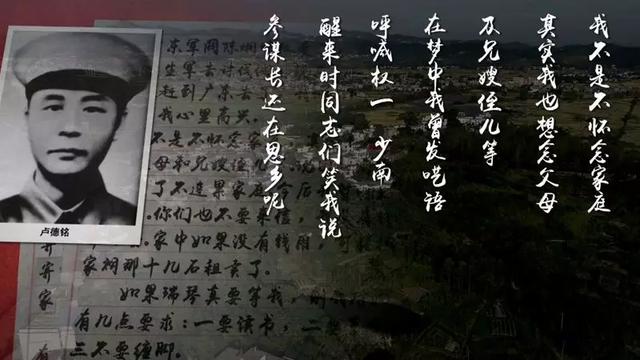 我不是不怀念家庭
其实我也想念父母
及兄嫂侄儿等
在梦中我曾发呓语
呼喊权一 少南
醒来时同志们笑我说
参谋长还在思乡呢
卢德铭
东军阀陈炯
生军去讨伐
赶到广东去
我心里高兴。
不是不怀念家
母和兄嫂侄儿
了不连累家庭今后
。你们也不要来信，
。家中如果没有钱用，
家祠那十几石租卖了。
如果瑞琴真要等我，
有几点要求：一要读书，二要
三不要缠脚。